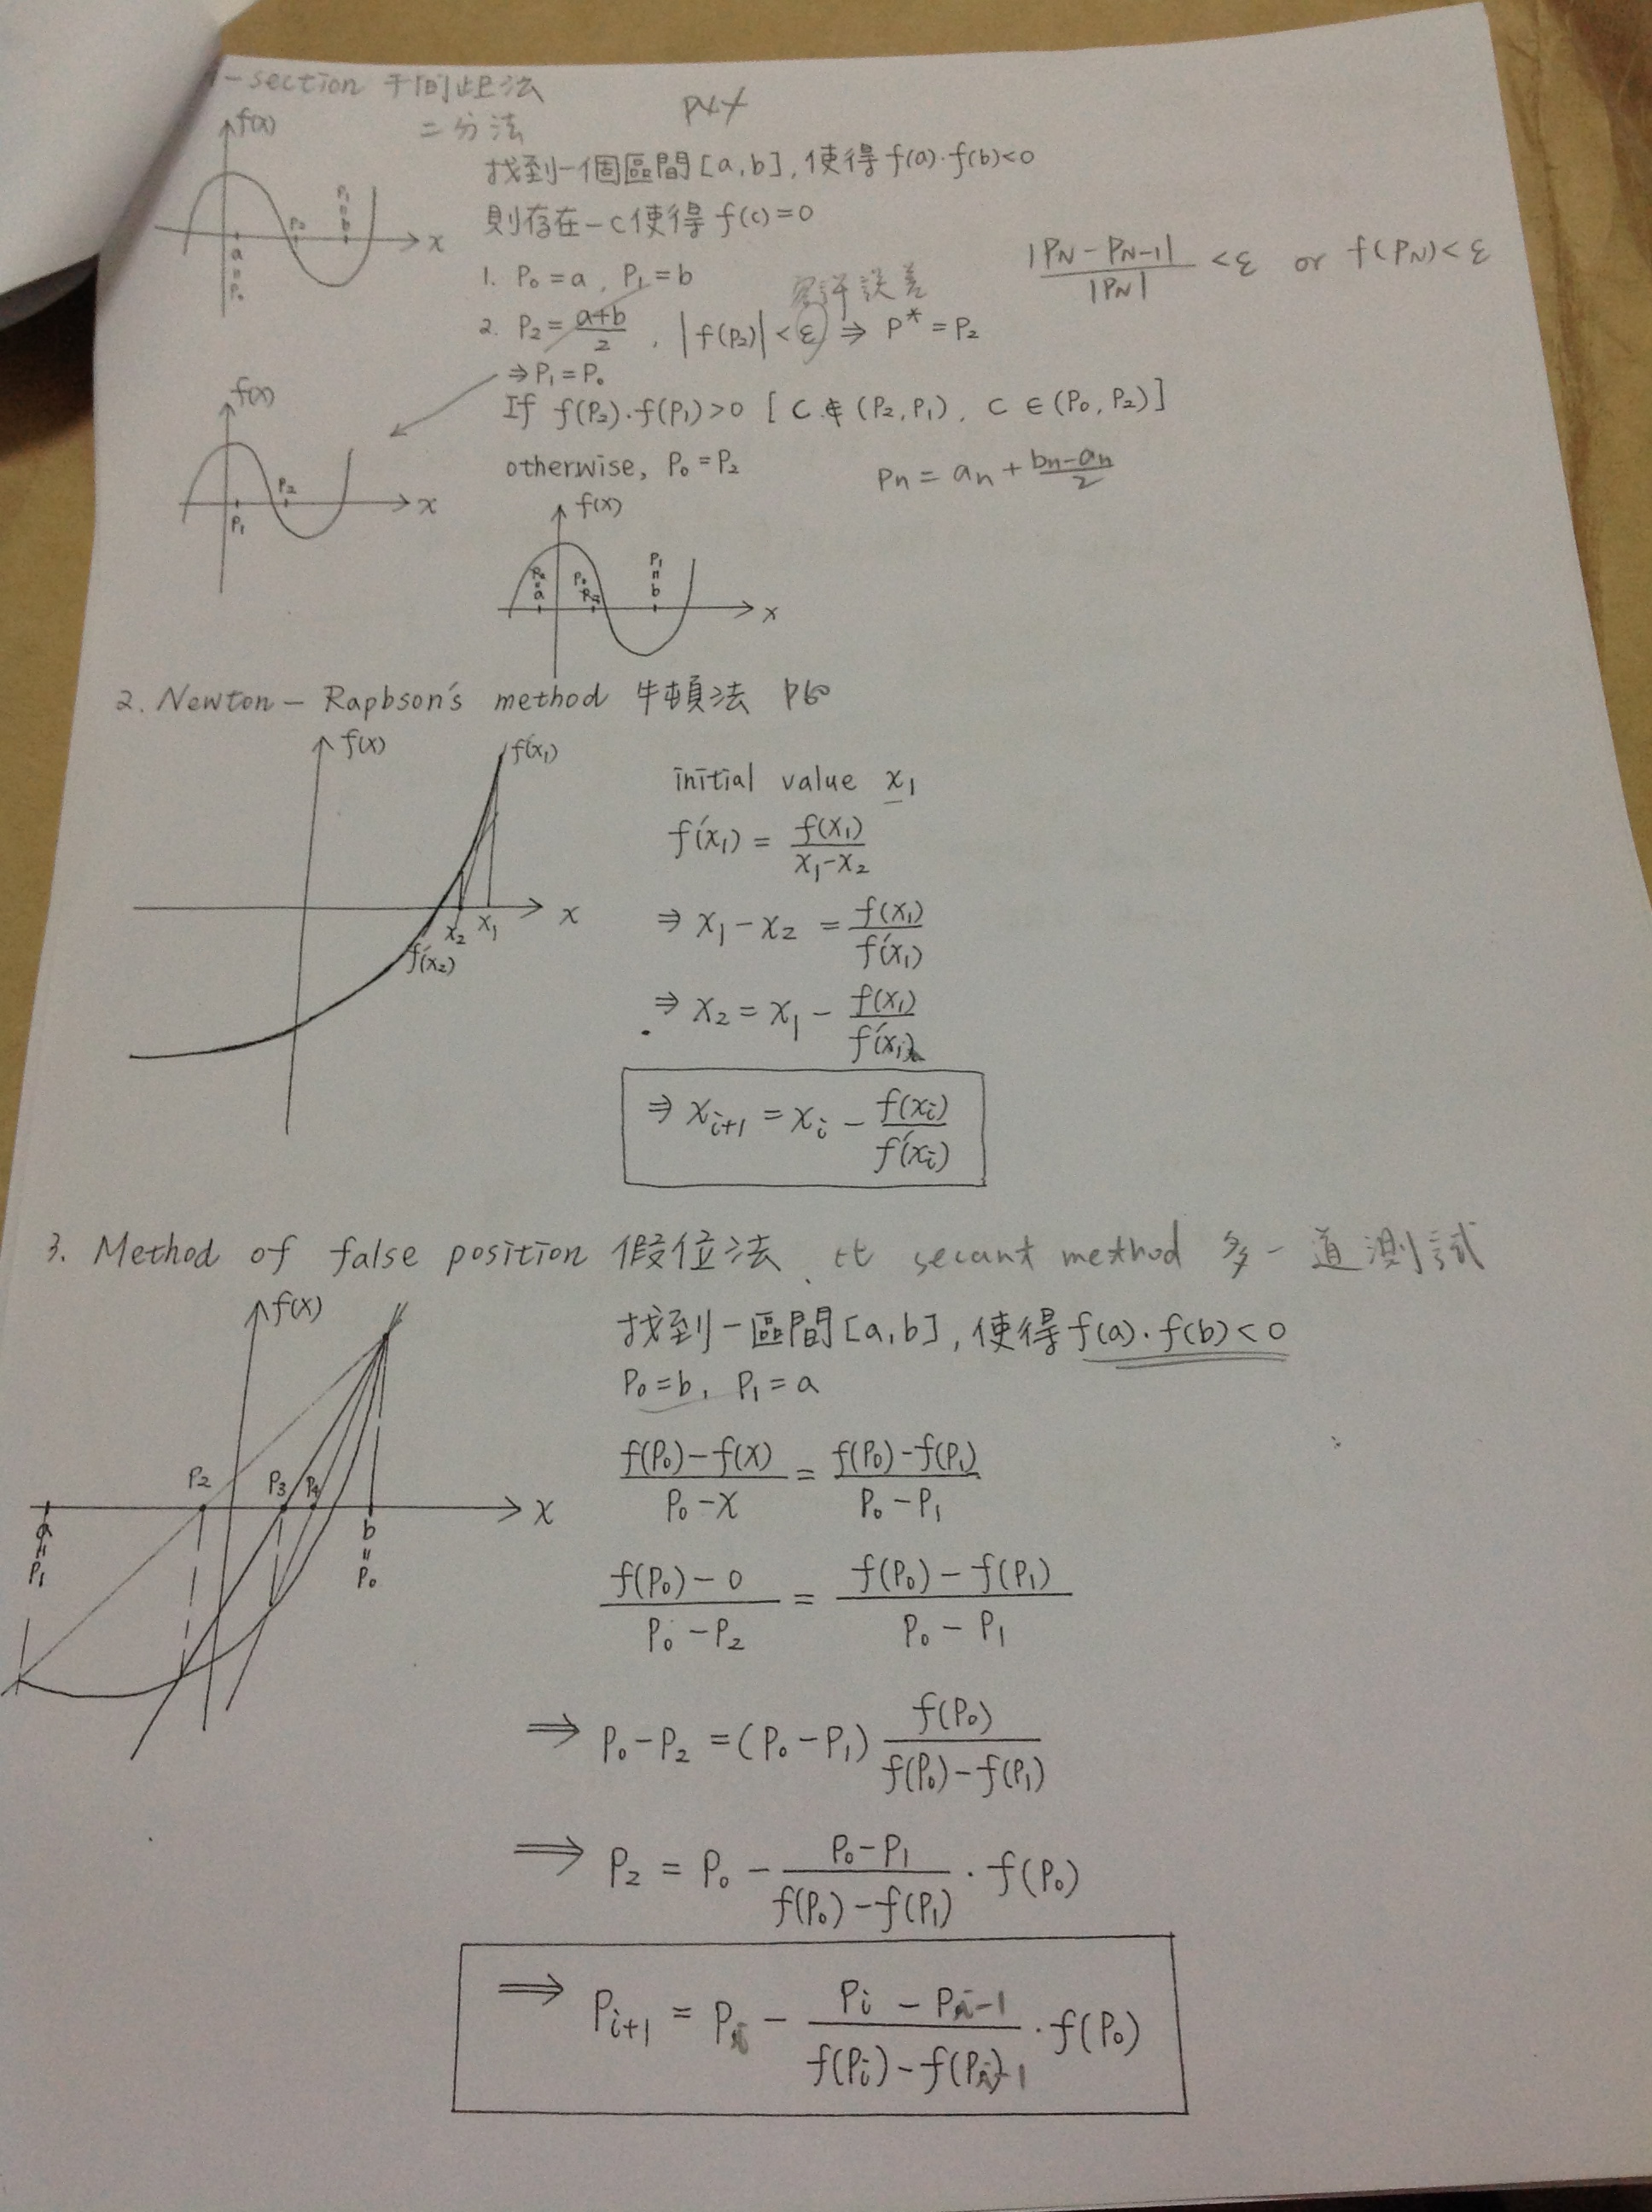 -section 平間距法
二分法
f(x)
x
a = P0
P2
P1 = b
找到一個區間[a,b],使得f(a)·f(b)<0
則存在一c使得f(c)=0
1. P0=a, P1=b
容許誤差
|PN-PN-1| / |PN| <ε or f(PN)<ε
2. P2= a+b / 2 , |f(P2)|<ε ⇒ P*=P2
⇒P1=P0
If f(P2)·f(P1)>0 [C∉(P2,P1), C∈(P0,P2)]
otherwise, P0=P2
Pn = an + bn-an / 2
f(x)
x
P1
P2
f(x)
x
a
P1 = b
2. Newton-Rapbson's method 牛頓法 P60
f(x)
f'(x1)
x
x2 x1
f'(x2)
initial value x1
f'(x1) = f(x1) / x1-x2
⇒ x1-x2 = f(x1) / f'(x1)
⇒ x2 = x1 - f(x1) / f'(x1)
⇒ xi+1 = xi - f(xi) / f'(xi)
3. Method of false position 假位法, 比 secant method 多一道測試
f(x)
P2 P3 P4
x
a = P1
b = P0
找到一區間[a,b],使得f(a)·f(b)<0
P0=b, P1=a
f(P0)-f(x) / P0-x = f(P0)-f(P1) / P0-P1
f(P0)-0 / P0-P2 = f(P0)-f(P1) / P0-P1
⇒ P0-P2 =(P0-P1) f(P0) / f(P0)-f(P1)
⇒ P2 = P0 - P0-P1 / f(P0)-f(P1) · f(P0)
⇒ Pi+1 = Pi - Pi-Pi-1 / f(Pi)-f(Pi-1) · f(P0)